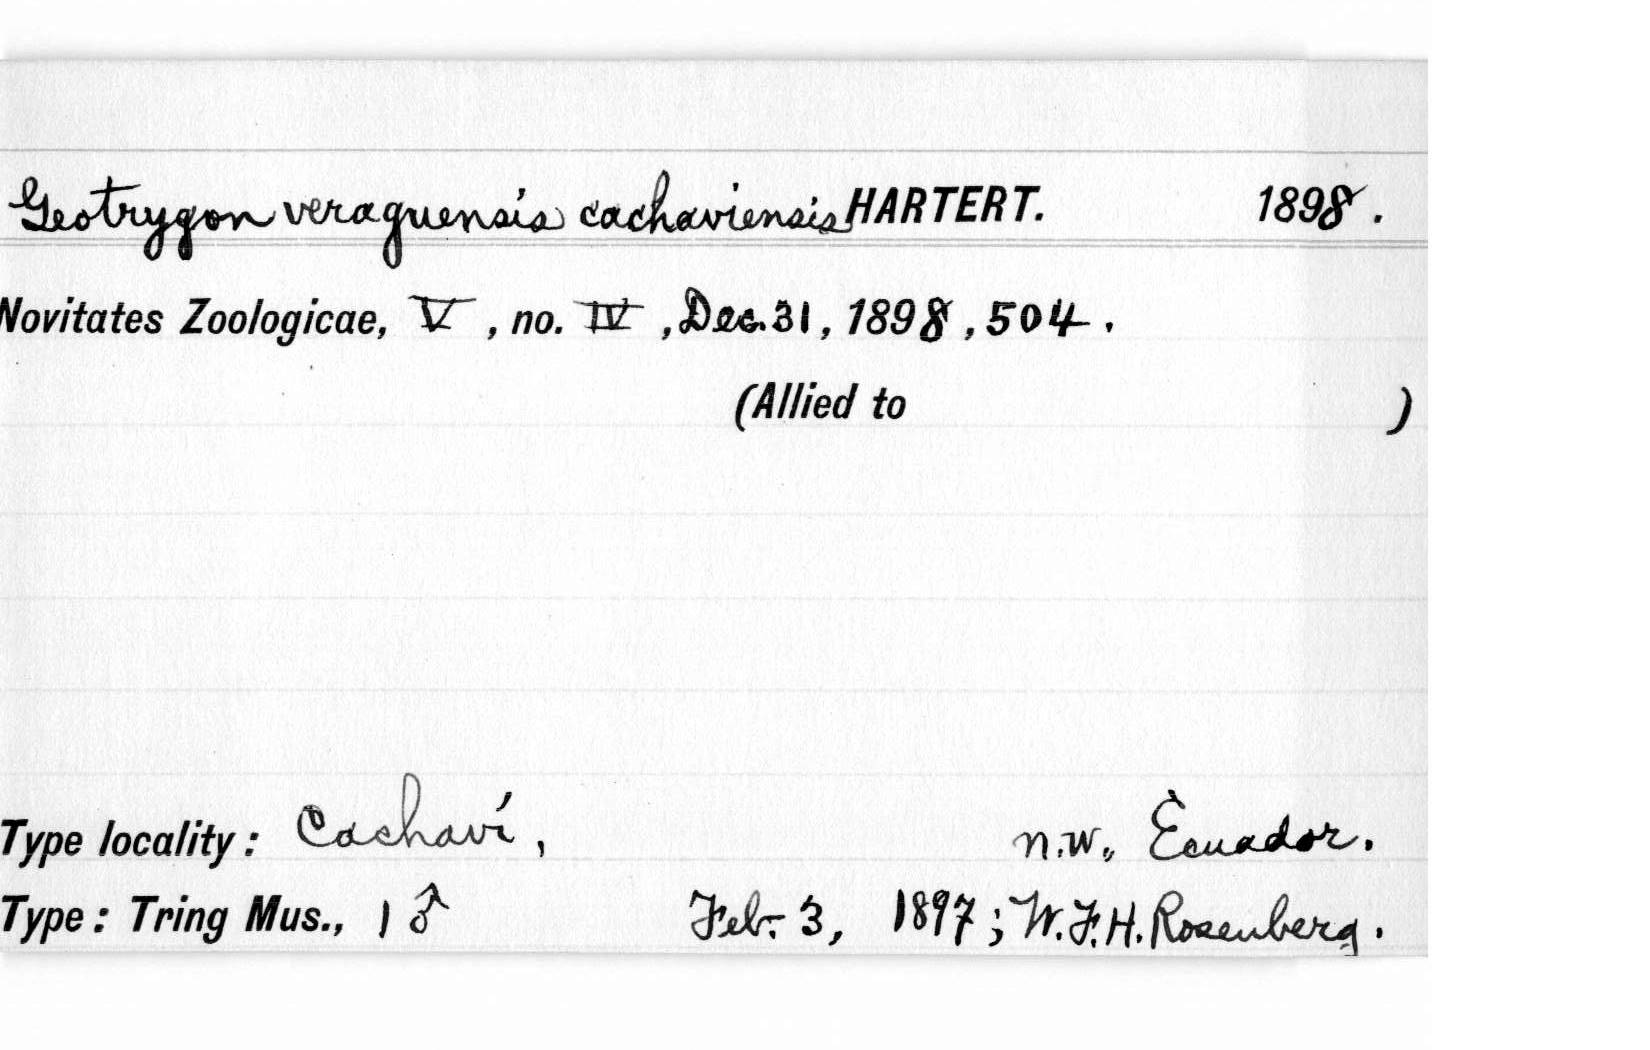 Geotrygon veraguensis cachaviensis HARTERT. 1898.
Novitates Zoologicae, V, no. IV, Dec. 31, 1898, 504.
(Allied to )
Type locality: Cachaví, n.w., Ecuador.
Type: Tring Mus., 1 ♂ Feb. 3, 1897; W.F.H. Rosenberg.